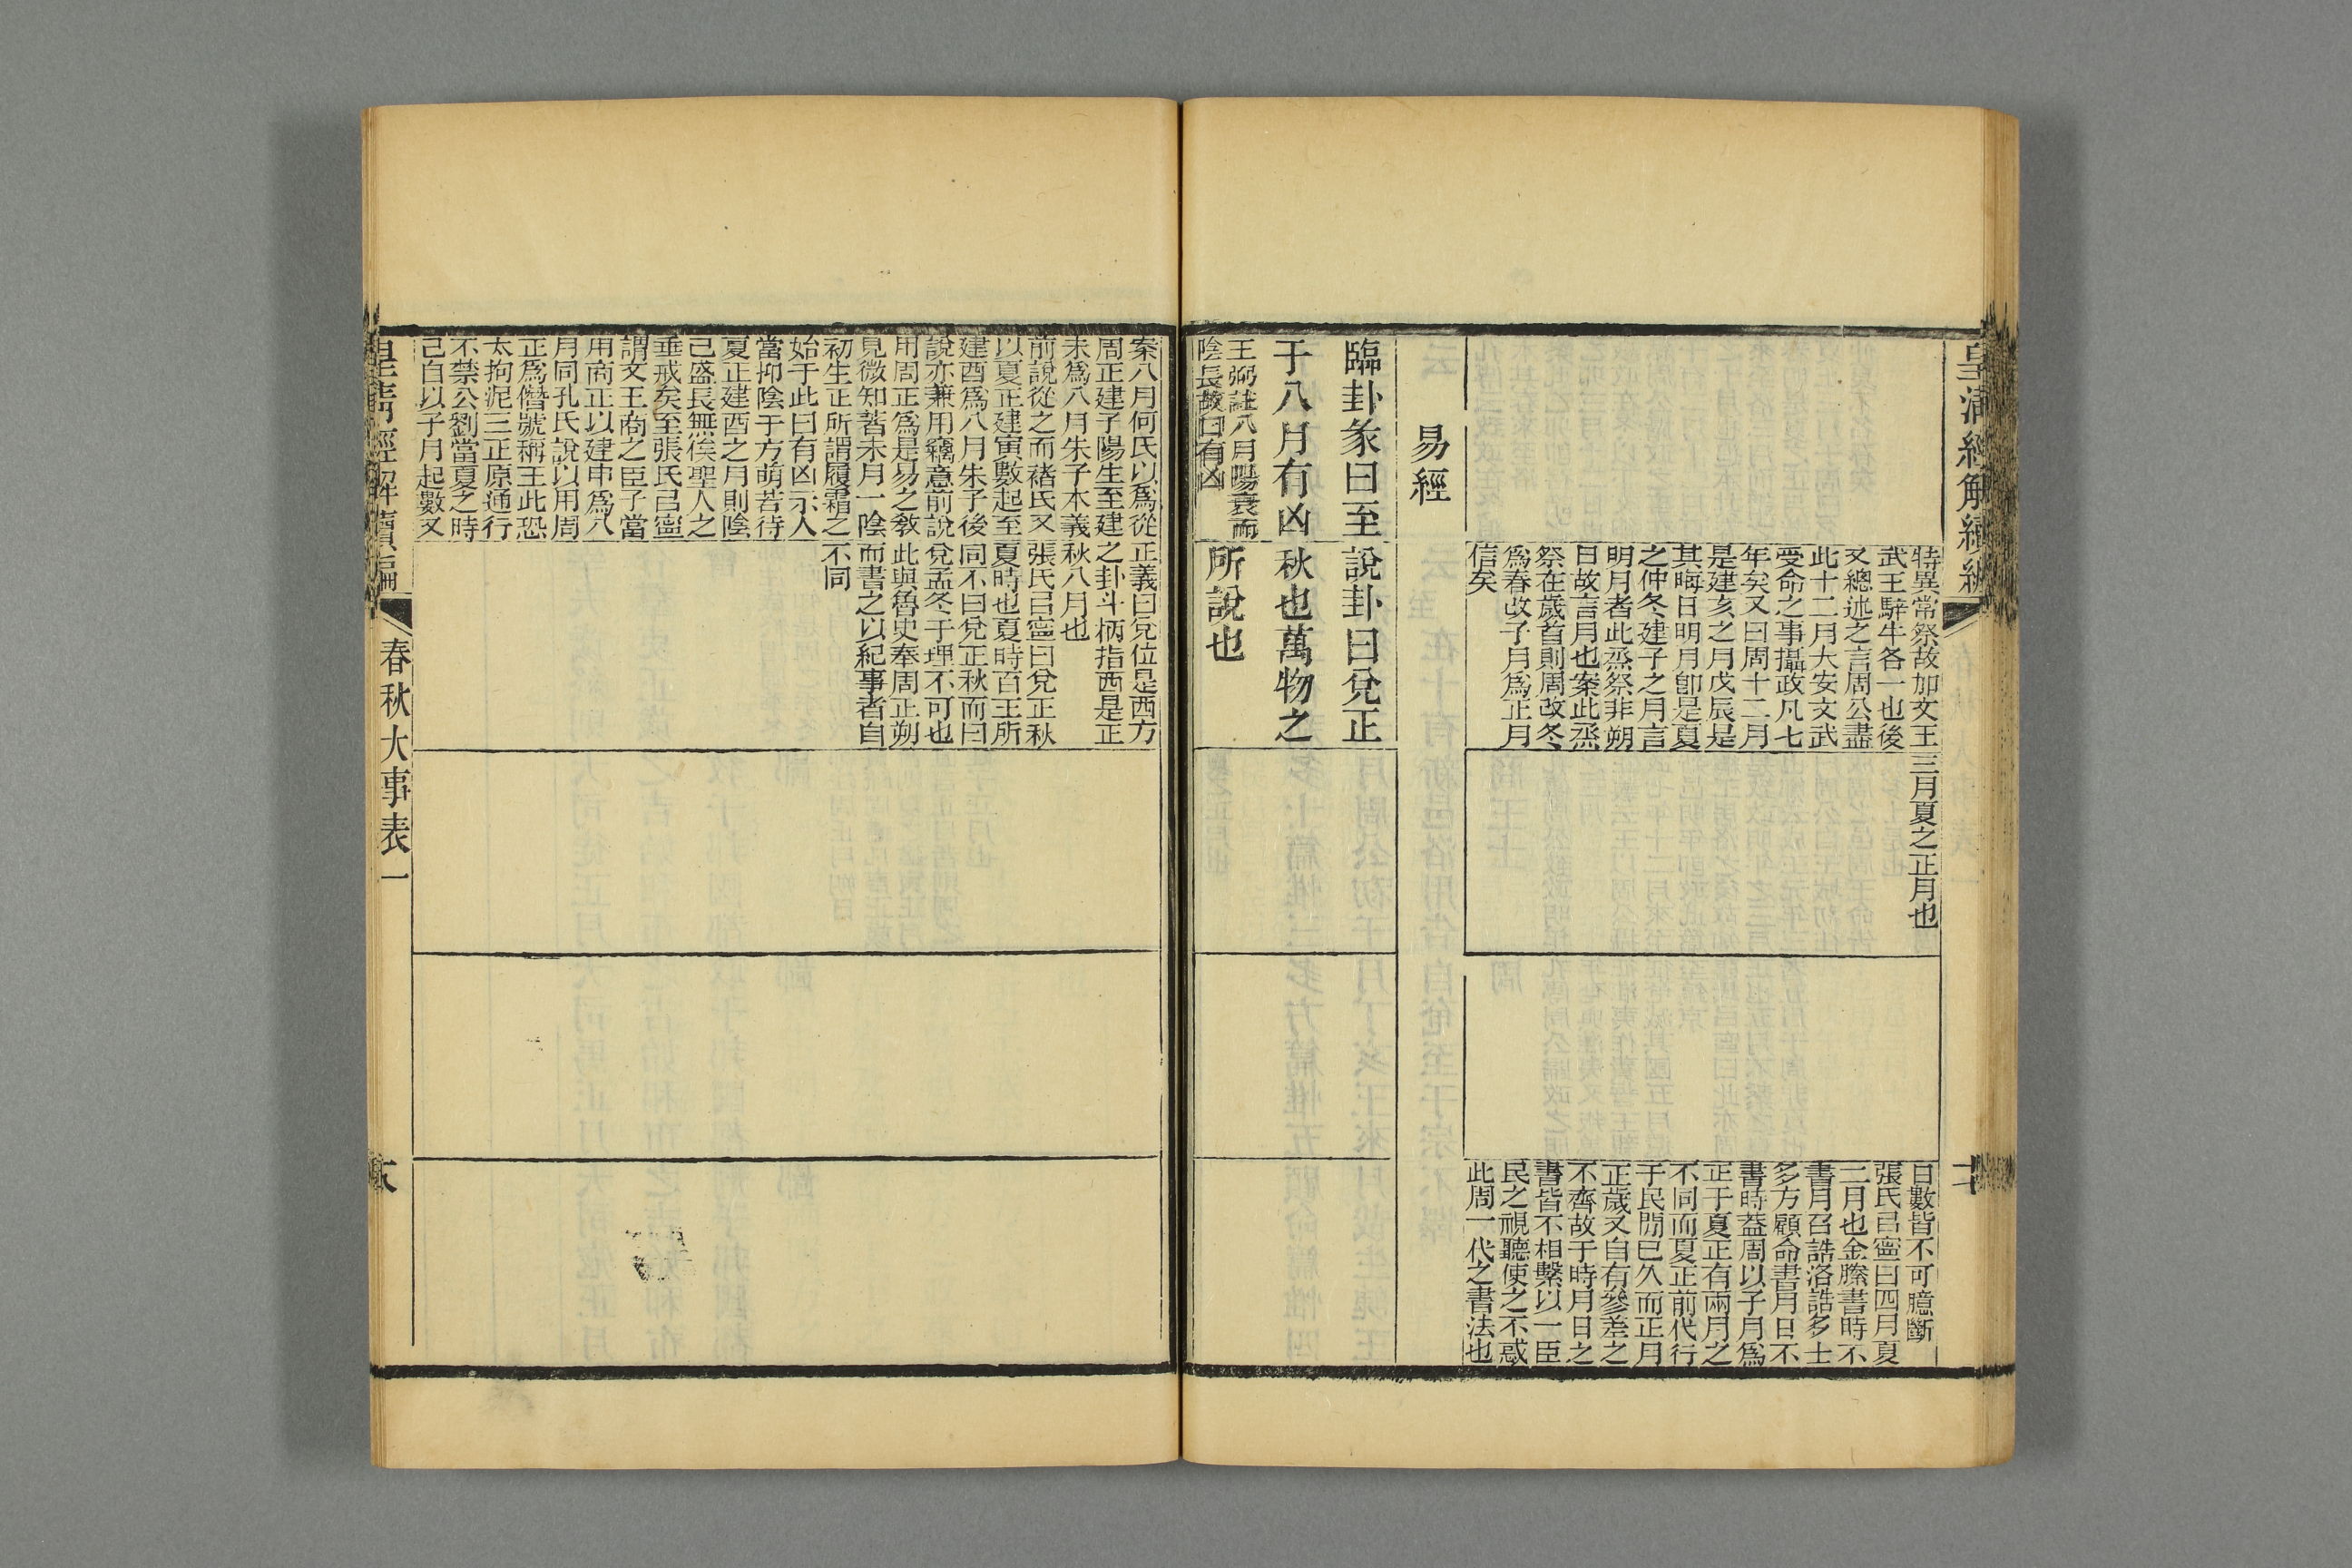 皇清經解續編
特異常祭故加文王
武王騂牛各一也後
又總述之言周公盡
此十二月大安文武
受命之事攝政凡七
年矣又曰周十二月
是建亥之月戊辰是
其晦日明月卽是夏
之仲冬建子之月言
明月者此烝祭非朔
日故言月也案此烝
祭在歲首則周改冬
爲春改子月爲正月
信矣
三月夏之正月也
日數皆不可臆斷
張氏㠯寧曰四月夏
二月也金縢書時不
書月召誥洛誥多士
多方顧命書月日不
書時蓋周以子月爲
正于夏正有兩月之
不同而夏正前代行
于民閒已久而正月
正歲又自有參差之
不齊故于時月日之
書皆不相繫以一臣
民之視聽使之不惑
此周一代之書法也
易經
臨卦彖曰至
于八月有凶
王弼註八月陽衰而
陰長故曰有凶
說卦曰兌正
秋也萬物之
所說也
案八月何氏以爲從
周正建子陽生至建
未爲八月朱子本義
前說從之而褚氏又
以夏正建寅數起至
建酉爲八月朱子後
說亦兼用竊意前說
用周正爲是易之敎
見微知著未月一陰
初生正所謂履霜之
始于此曰有凶示人
當抑陰于方萌若待
夏正建酉之月則陰
已盛長無俟聖人之
垂戒矣至張氏㠯寧
謂文王商之臣子當
用商正以建申爲八
月同孔氏說以用周
正爲僭號稱王此恐
太拘泥三正原通行
不禁公劉當夏之時
已自以子月起數又
正義曰兌位是西方
之卦斗柄指西是正
秋八月也
張氏㠯寧曰兌正秋
夏時也夏時百王所
同不曰兌正秋而曰
兌孟冬于理不可也
此與魯史奉周正朔
而書之以紀事者自
不同
皇清經解續編
春秋大事表一